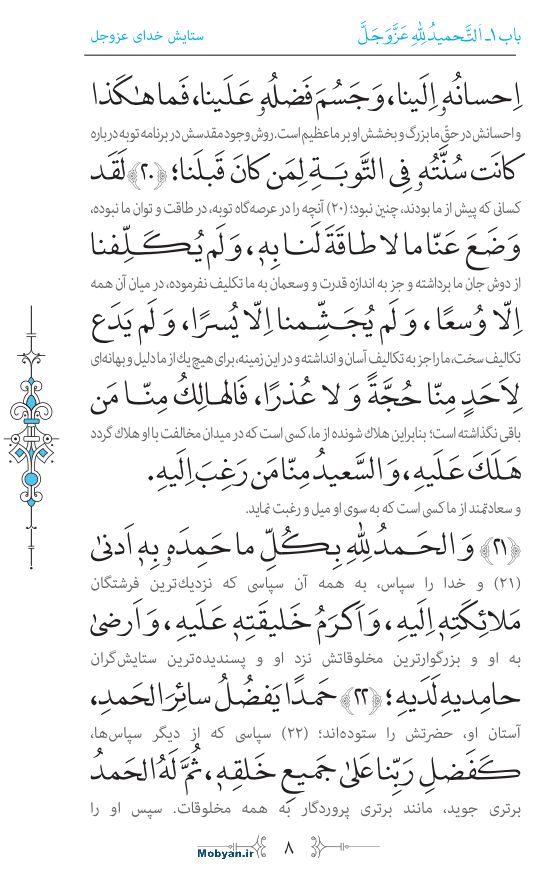 باب ۱ـ اَلتَّحمیدُ لِلّٰهِ عَزَّوَجَلَّ
ستایش خدای عزوجل
اِحسانُهُ اِلَینا، وَ جَسُمَ فَضلُهُ عَلَینا، فَما هٰکَذا
و احسانش در حقّ ما بزرگ و بخشش او بر ما عظیم است. روش وجود مقدسش در برنامه توبه درباره
کانَت سُنَّتُهُ فِی التَّوبَةِ لِمَن کانَ قَبلَنا؛ ﴿۲۰﴾ لَقَد
کسانی که پیش از ما بودند، چنین نبود؛ (۲۰) آنچه را در عرصه‌گاه توبه، در طاقت و توان ما نبوده،
وَضَعَ عَنّا ما لا طاقَةَ لَنا بِهِ، وَ لَم یُکَلِّفنا
از دوش جان ما برداشته و جز به اندازه قدرت و وسعمان به ما تکلیف نفرموده، در میان آن همه
اِلّا وُسعًا، وَ لَم یُجَشِّمنا اِلّا یُسرًا، وَ لَم یَدَع
تکالیف سخت، ما را جز به تکالیف آسان وانداشته و در این زمینه، برای هیچ یک از ما دلیل و بهانه‌ای
لِاَحَدٍ مِنّا حُجَّةً وَ لا عُذرًا، فَالهالِکُ مِنّا مَن
باقی نگذاشته است؛ بنابراین هلاک شونده از ما، کسی است که در میدان مخالفت با او هلاک گردد
هَلَکَ عَلَیهِ، وَ السَّعیدُ مِنّا مَن رَغِبَ اِلَیهِ.
و سعادتمند از ما کسی است که به سوی او میل و رغبت نماید.
﴿۲۱﴾ وَ الحَمدُ لِلّٰهِ بِکُلِّ ما حَمِدَهُ بِهِ اَدنیٰ
(۲۱) و خدا را سپاس، به همه آن سپاسی که نزدیک‌ترین فرشتگان
مَلائِکَتِهِ اِلَیهِ، وَ اَکرَمُ خَلیقَتِهِ عَلَیهِ، وَ اَرضیٰ
به او و بزرگوارترین مخلوقاتش نزد او و پسندیده‌ترین ستایش‌گران
حامِدیهِ لَدَیهِ؛ ﴿۲۲﴾ حَمدًا یَفضُلُ سائِرَ الحَمدِ،
آستان او، حضرتش را ستوده‌اند؛ (۲۲) سپاسی که از دیگر سپاس‌ها،
کَفَضلِ رَبِّنا عَلیٰ جَمیعِ خَلقِهِ، ثُمَّ لَهُ الحَمدُ
برتری جوید، مانند برتری پروردگار به همه مخلوقات. سپس او را
۸
Mobyan.ir